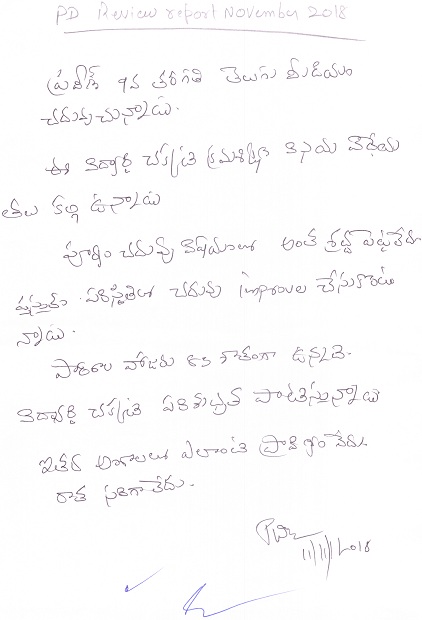 PD Review report November 2018
ప్రవీణ్ 9వ తరగతి తెలుగు మీడియం
చదువుచున్నాడు.
ఈ విద్యార్థి చక్కటి క్రమశిక్షణ వినయ విధేయ
తలు కల్గి ఉన్నాడు
పూర్వం చదువు విషయంలో అంత శ్రద్ధ పెట్టలేదు
ప్రస్తుతం పరిస్థితిలో చదువు improve చేసుకొంటు
న్నాడు.
పాఠశాల హాజరు 85 శాతంగా ఉన్నది.
విద్యార్థి చక్కటి పరిశుభ్రత పాటిస్తున్నాడు
ఇతర అంశాలలో ఎలాంటి ప్రావీణ్యం లేదు.
రాత సరిగా లేదు.
11/11/2018